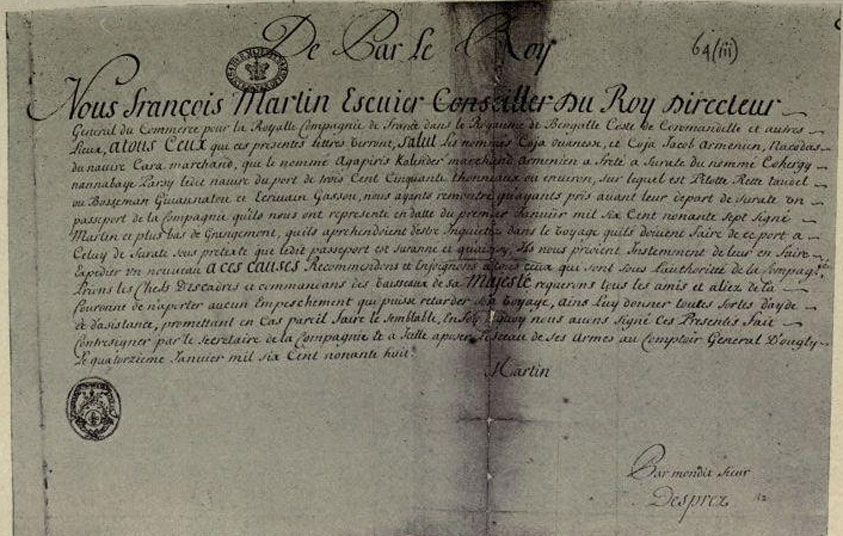 De Par Le Roy
64/(iii)
Nous François Martin Escuier Conseiller Du Roy Directeur
General du Commerce pour la Royalle Compagnie de France dans le Royaume de Bengalle Coste de Coromandelle et autres
Lieux, atous Ceux qui ces presentes lettres verront, salut Les nommés Coja ouanesse, et Coja Jacob Armenien, Nacodas
du navire Cara marchand, que le nommé Agapiris Kalender marchand Armenien a freté a Surate du nommé Cohergy
nannabaye Parsy ledit navire du port de trois Cent Cinquante thonneaux ou environ, sur lequel est Pilotte Rette
ou Bosseman et Gassou, nous ayants remontré quayants pris avant leur depart de Surate un
passeport de la Compagnie quils nous ont representé en datte du premier Janvier mil six Cent nonante sept signé
Martin et plus bas de Grangemont, quils aprehendoient destre Inquietés dans le voyage quils doivent faire de ce port a
Celuy de Surate sous pretexte que ledit passeport est suranné et quainsy, Ils nous prioient Instemment de leur en faire
Expedier un nouveau aces causes Recommendons et Enjoignons atous ceux qui sont sous l'authorité de la Compagie
Prions les Chefs Descadres et commandans des vaisseaux de sa Majesté requerons tous les amis et aliez de la
Couronne de n'aporter aucun Empeschement qui puisse retarder son voyage, ains Luy donner toutes sortes dayde
et dasistance, promettant en Cas pareil faire le semblable, En foy dequoy nous avons signé Ces Presentes fait
Contresigner par le Secretaire de la Compagnie et a Icelle aposer le sceau de ses Armes au Comptoir General D'ougly
Le quatorzieme Janvier mil six Cent nonante huit.
Martin
Par mondit sieur
Desprez